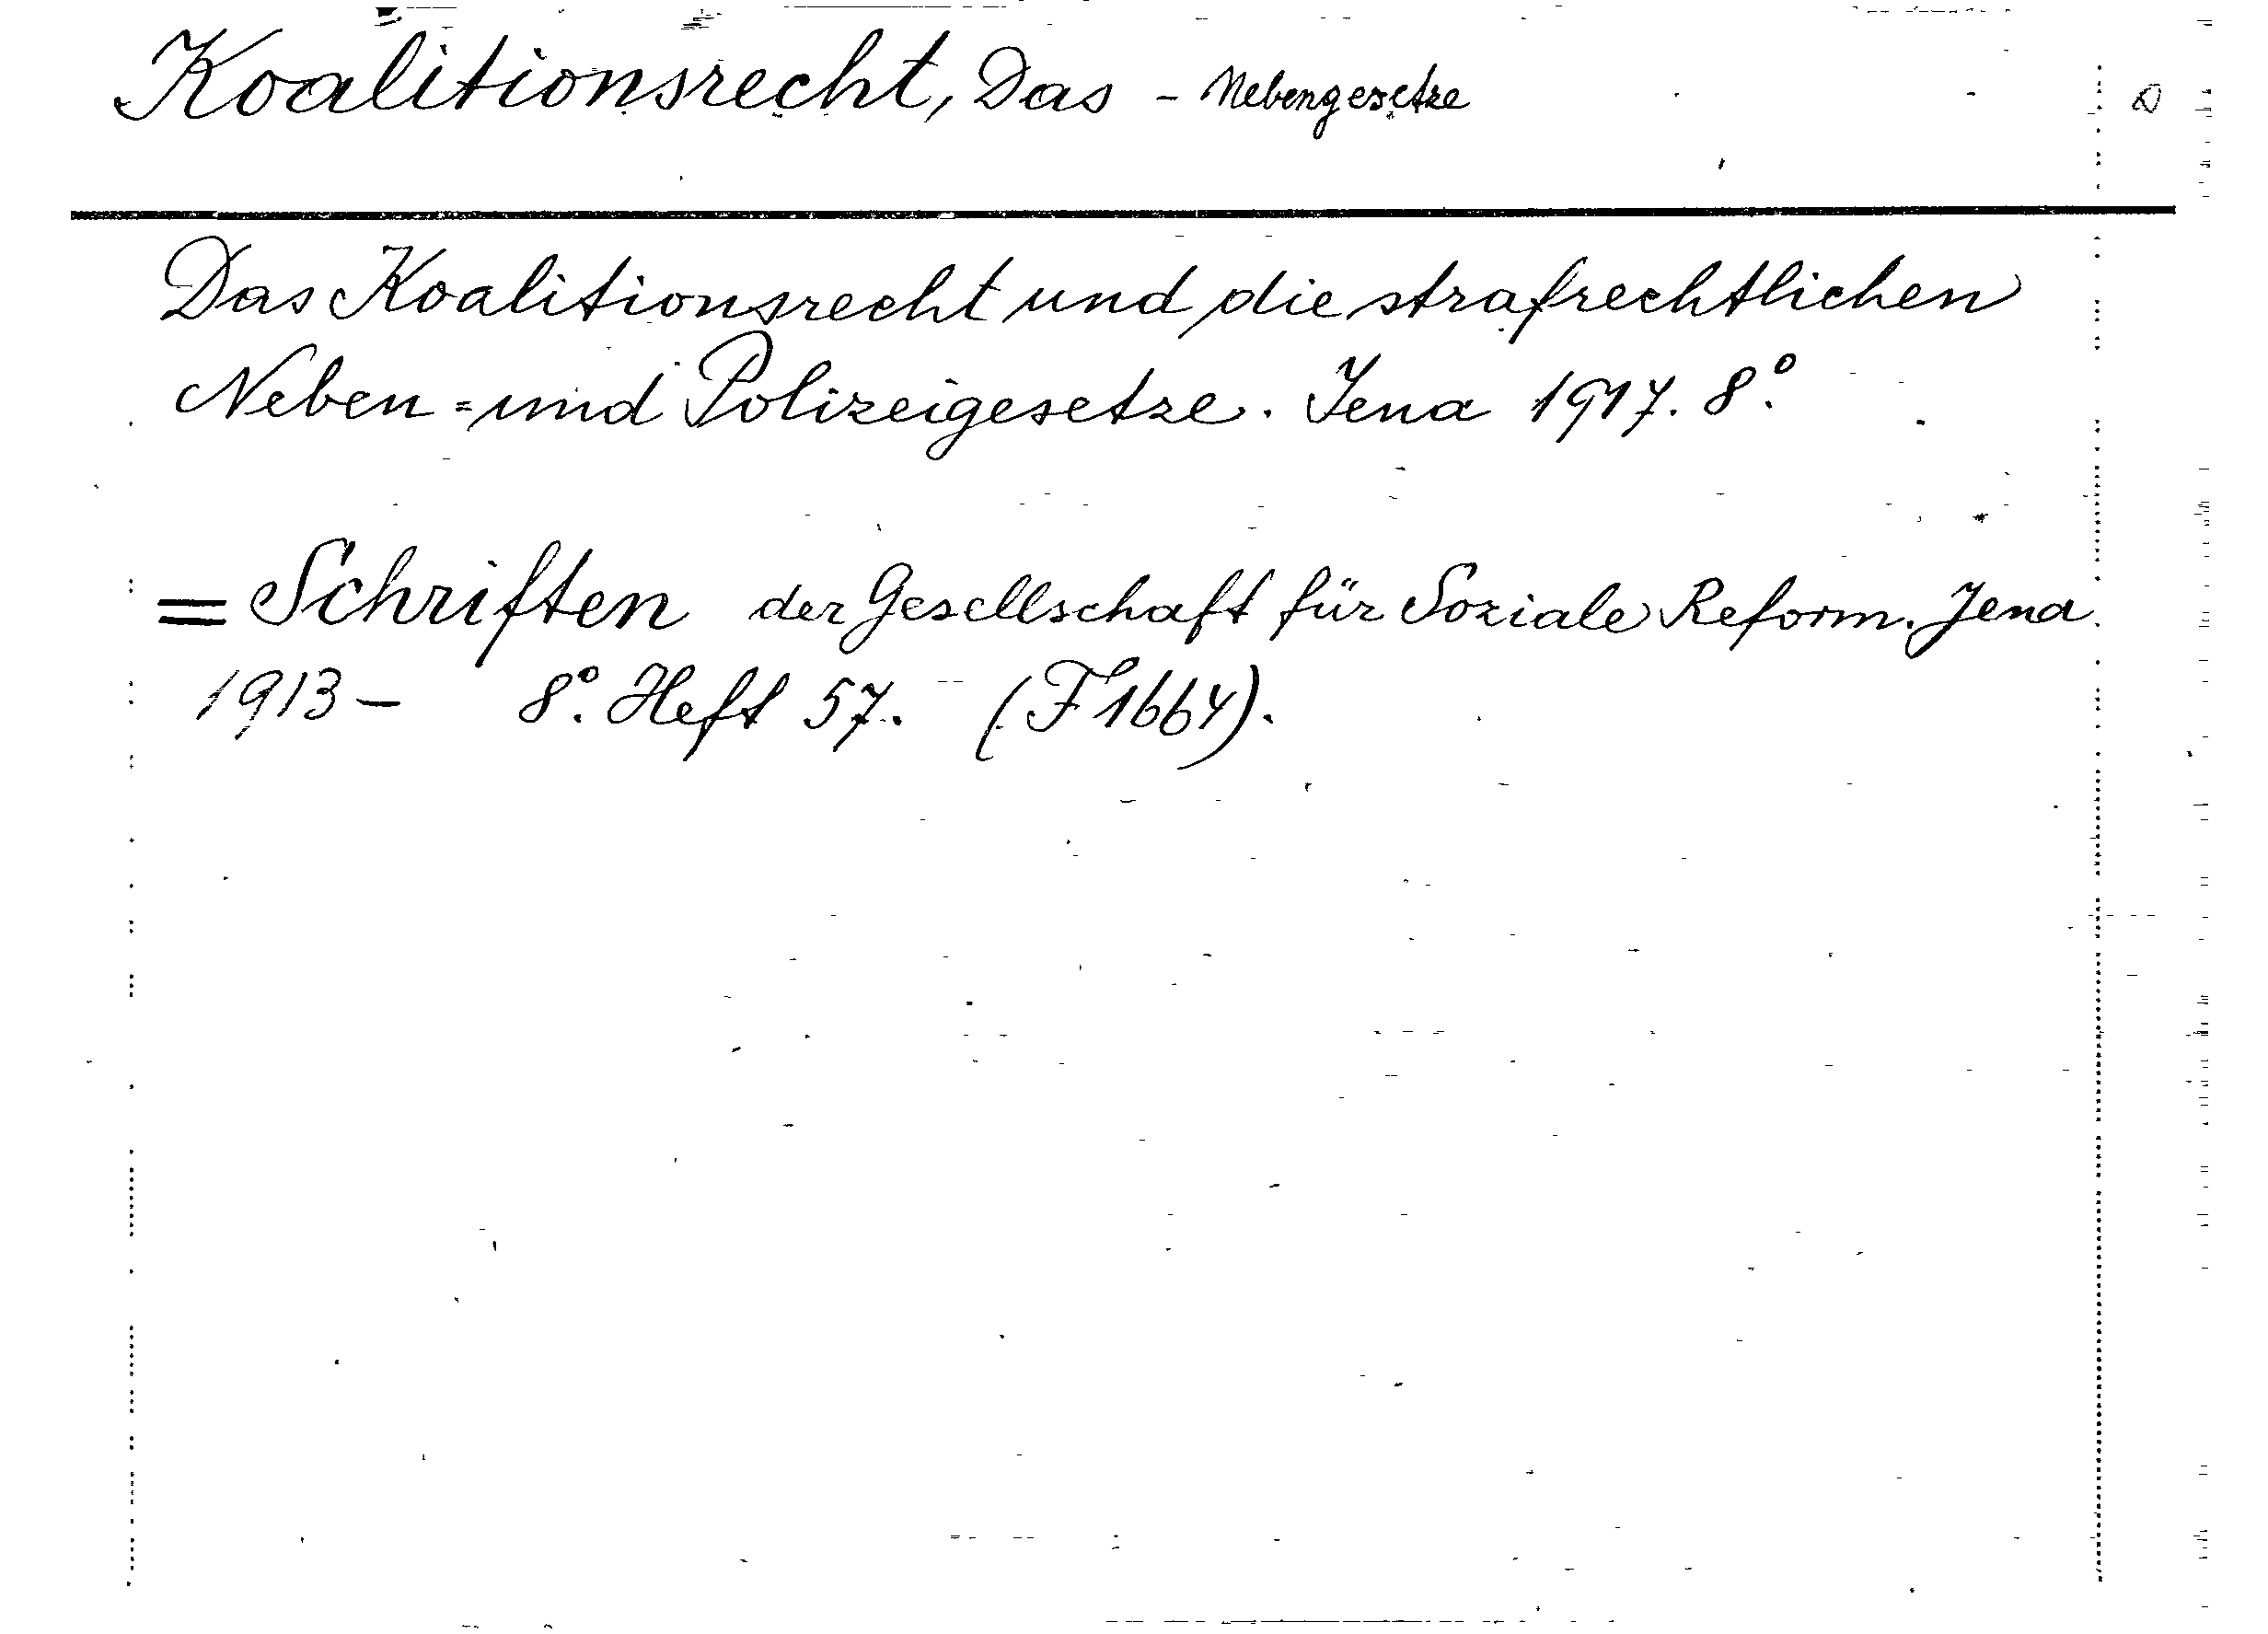 Koalitionsrecht, Das - Nebengesetze
Das Koalitionsrecht und die strafrechtlichen
Neben= und Polizeigesetze. Jena 1917. 8°.
= Schriften der Gesellschaft für Soziale Reform. Jena
1913- 8°. Heft 57. (F 1664).